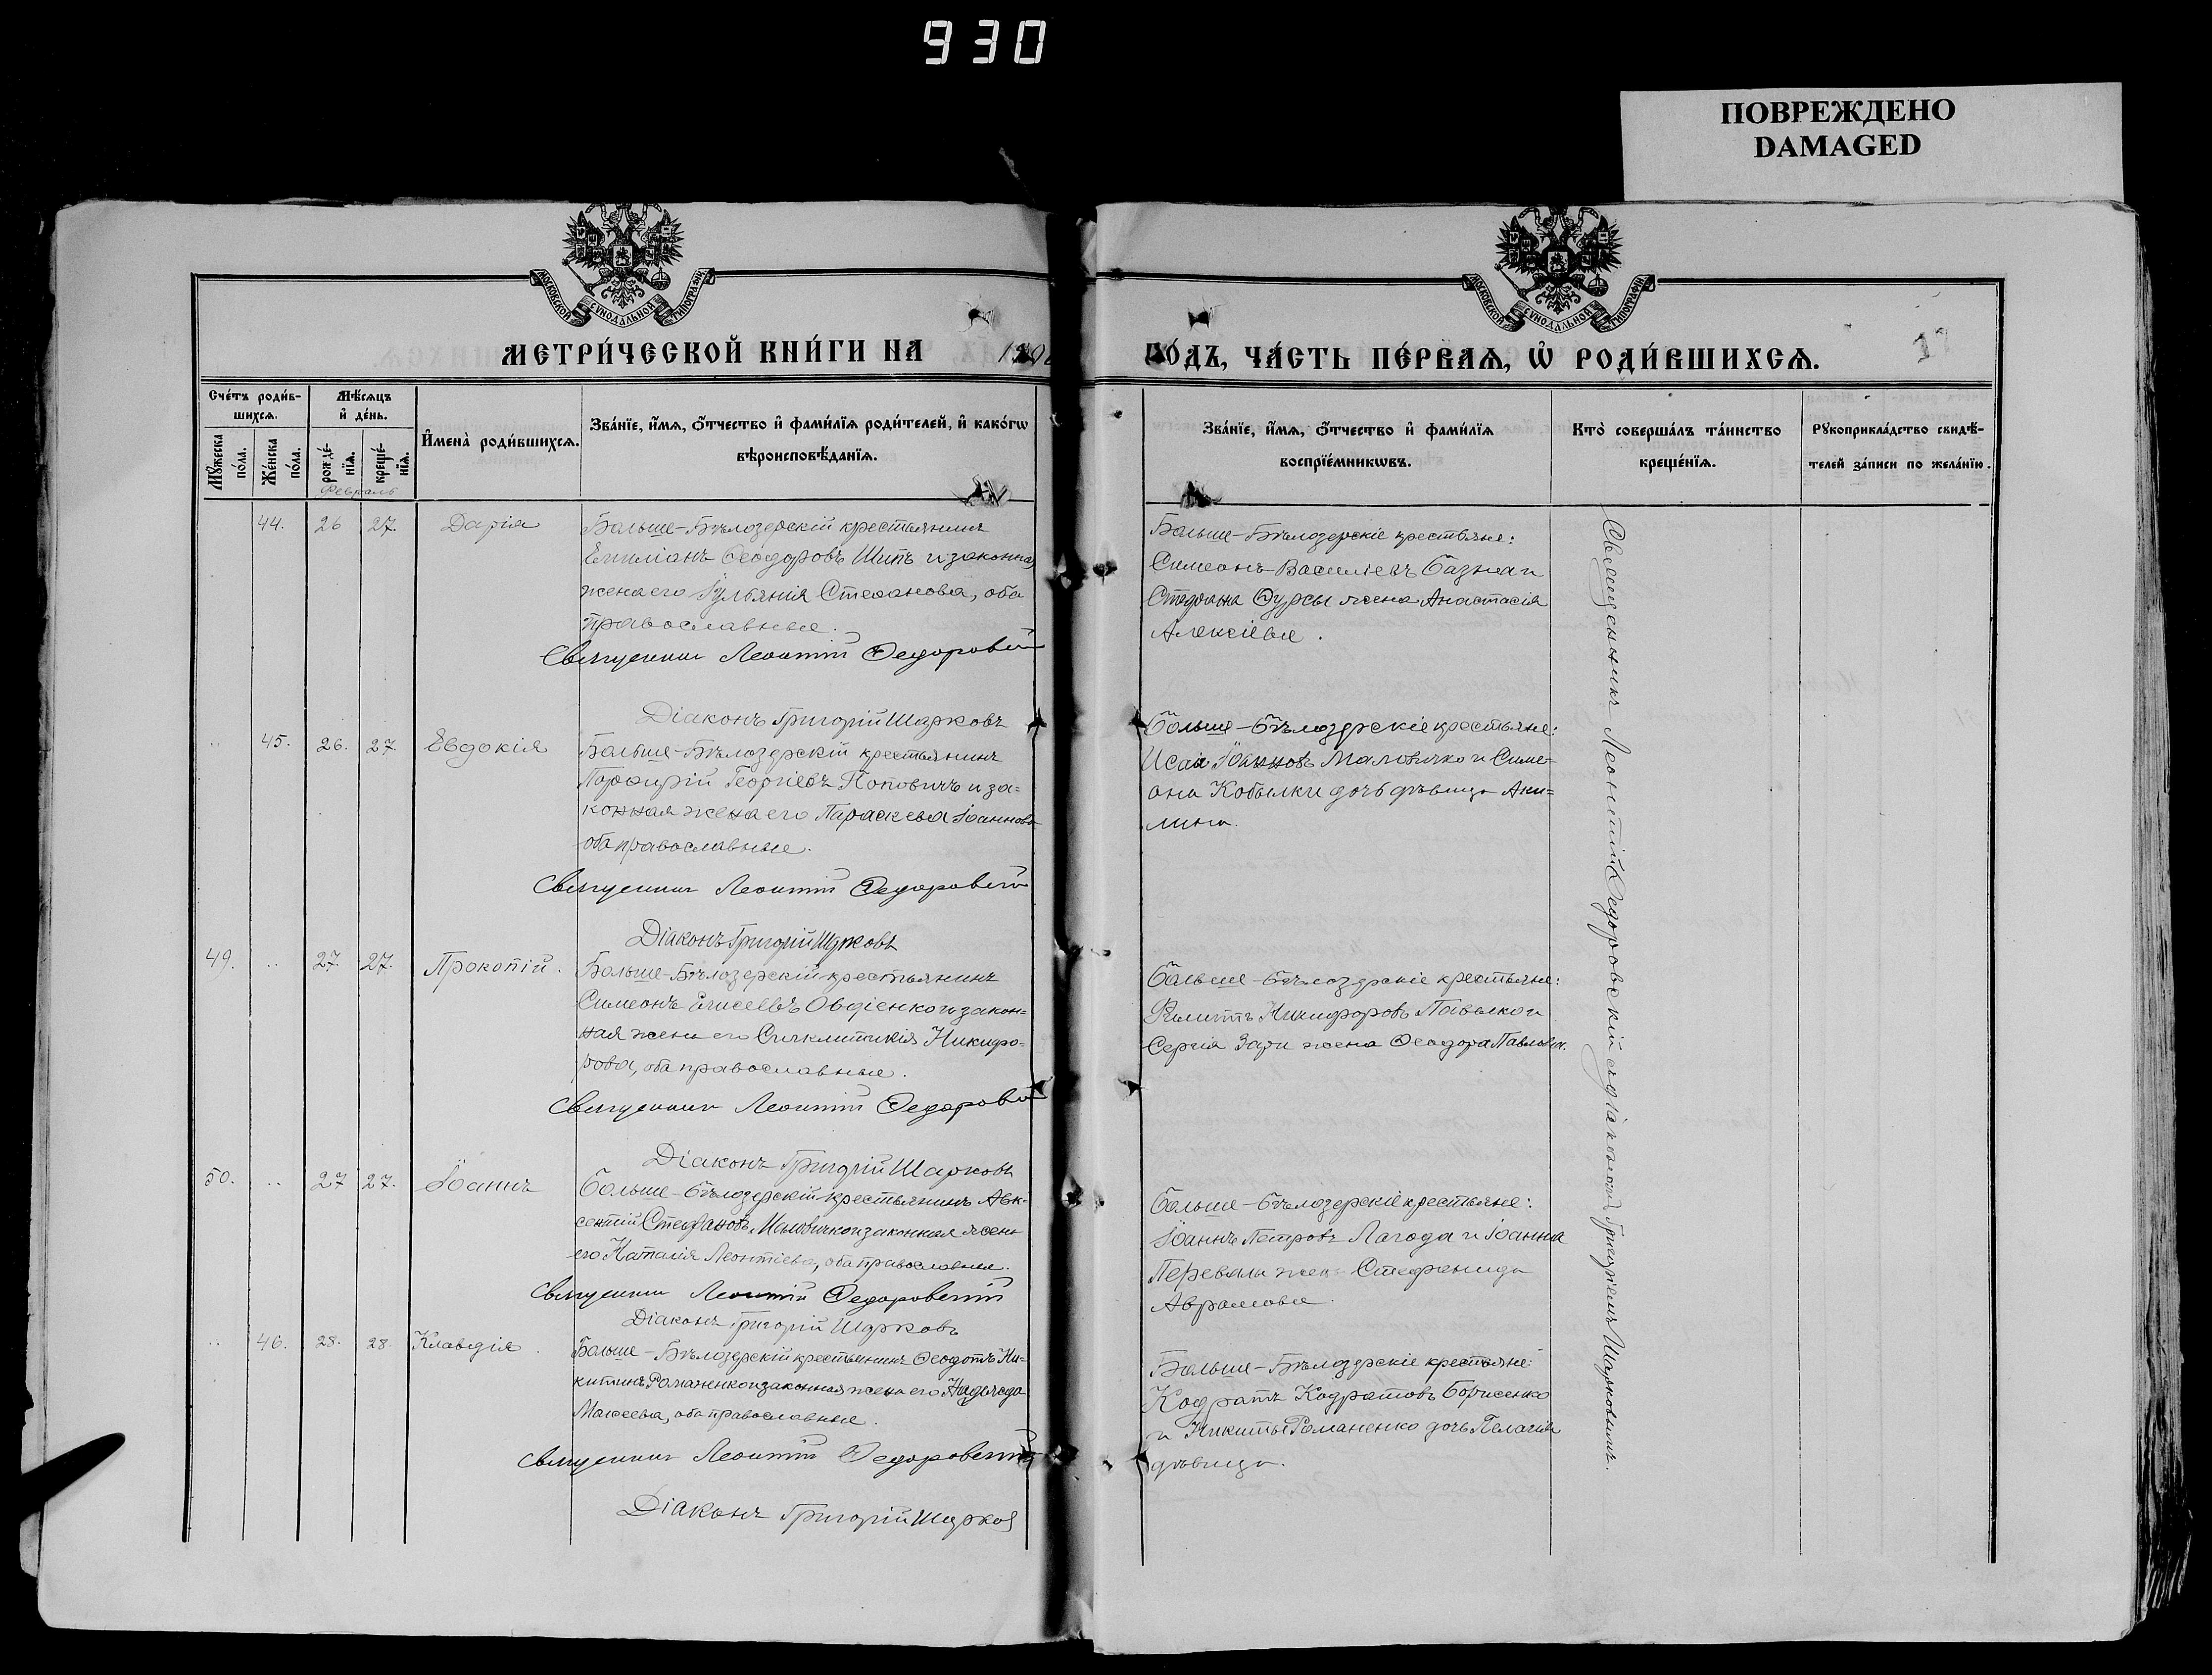 930
ПОВРЕЖДЕНО
DAMAGED
МОСКОВСКОЙ СѴНОДАЛЬНОЙ ТИПОГРАФІИ
МОСКОВСКОЙ СѴНОДАЛЬНОЙ ТИПОГРАФІИ
МЕТРИ́ЧЕСКОЙ КНИ́ГИ НА
ГО́ДЪ, ЧА́СТЬ ПЕ́РВАѦ, Ѡ҆ РОДИ́ВШИХСѦ.
Сче́тъ роди́в-
шихсѧ.
Мꙋ́жеска по́ла.
Же́нска по́ла.
Мѣ́сѧцъ
и҆ де́нь.
рожде́-нїѧ.
креще́-нїѧ.
Февраль
И҆мена̀ роди́вшихсѧ.
Зва́нїе, и҆́мѧ, ѻ҆́тчество и҆ фами́лїѧ роди́телей, и҆ како́гѡ
вѣроисповѣ́данїѧ.
Зва́нїе, и҆́мѧ, ѻ҆́тчество и҆ фами́лїѧ
воспрїе́мникѡвъ.
Кто̀ соверша́лъ та́инство
креще́нїѧ.
Рꙋкоприкла́дство свидѣ́-
телей за́писи по жела́нїю.
44. 26 27. Дарія
Больше-Бѣлозерскій крестьянинъ
Емиліанъ Ѳеодоровъ Шитъ и законна
жена его Іульянія Стефанова, оба
православные.
Священникъ Леонтій Ѳедоровскій
Діаконъ Григорій Шарковъ
Больше-Бѣлозерскіе крестьяне:
Симеонъ Василіевъ и
жена Анастасія
Алексіева.
.. 45. 26. 27. Евдокія
Больше-Бѣлозерскій крестьянинъ
Порфирій Георгіевъ Поповичъ и за=
конная жена его Параскева Іоаннова
оба православные.
Священникъ Леонтій Ѳедоровскій
Діаконъ Григорій Шарковъ
Больше-Бѣлозерскіе крестьяне:
Исаія Іоанновъ Маловичко и Симе-
она Кобылки дочь дѣвица Аки=
лина.
49. .. 27. 27. Прокопій.
Больше-Бѣлозерскій крестьянинъ
Симеонъ Елисеевъ Овдіенко и закон=
ная жена его Синклитикія Никифо=
рова, оба православные.
Священникъ Леонтій Ѳедоровскій
Діаконъ Григорій Шарковъ
Больше-Бѣлозерскіе крестьяне:
Филиппъ Никифоровъ и
Сергія Зари жена Ѳеодора Павлова.
50. .. 27 27. Іоаннъ
Больше-Бѣлозерскій крестьянинъ Авк=
сентій Стефановъ Маловичко и законная жена
его Наталія Леонтіева, оба православные.
Священникъ Леонтій Ѳедоровскій
Діаконъ Григорій Шарковъ
Больше-Бѣлозерскіе крестьяне:
Іоаннъ Петровъ Лагода и Іоанна
жена Стефанида
Аврамова.
.. 46. 28. 28. Клавдія.
Больше-Бѣлозерскій крестьянинъ Ѳеодотъ Ни=
китинъ Романенко и законная жена его Надежда
Моисеева, оба православные.
Священникъ Леонтій Ѳедоровскій
Діаконъ Григорій Шарковъ
Больше-Бѣлозерскіе крестьяне:
Кодратъ Кодратовъ Борисенко
и Никиты Романенко дочь Пелагія
дѣвица.
Священникъ Леонтій Ѳедоровскій съ діакономъ Григоріемъ Шарковымъ.